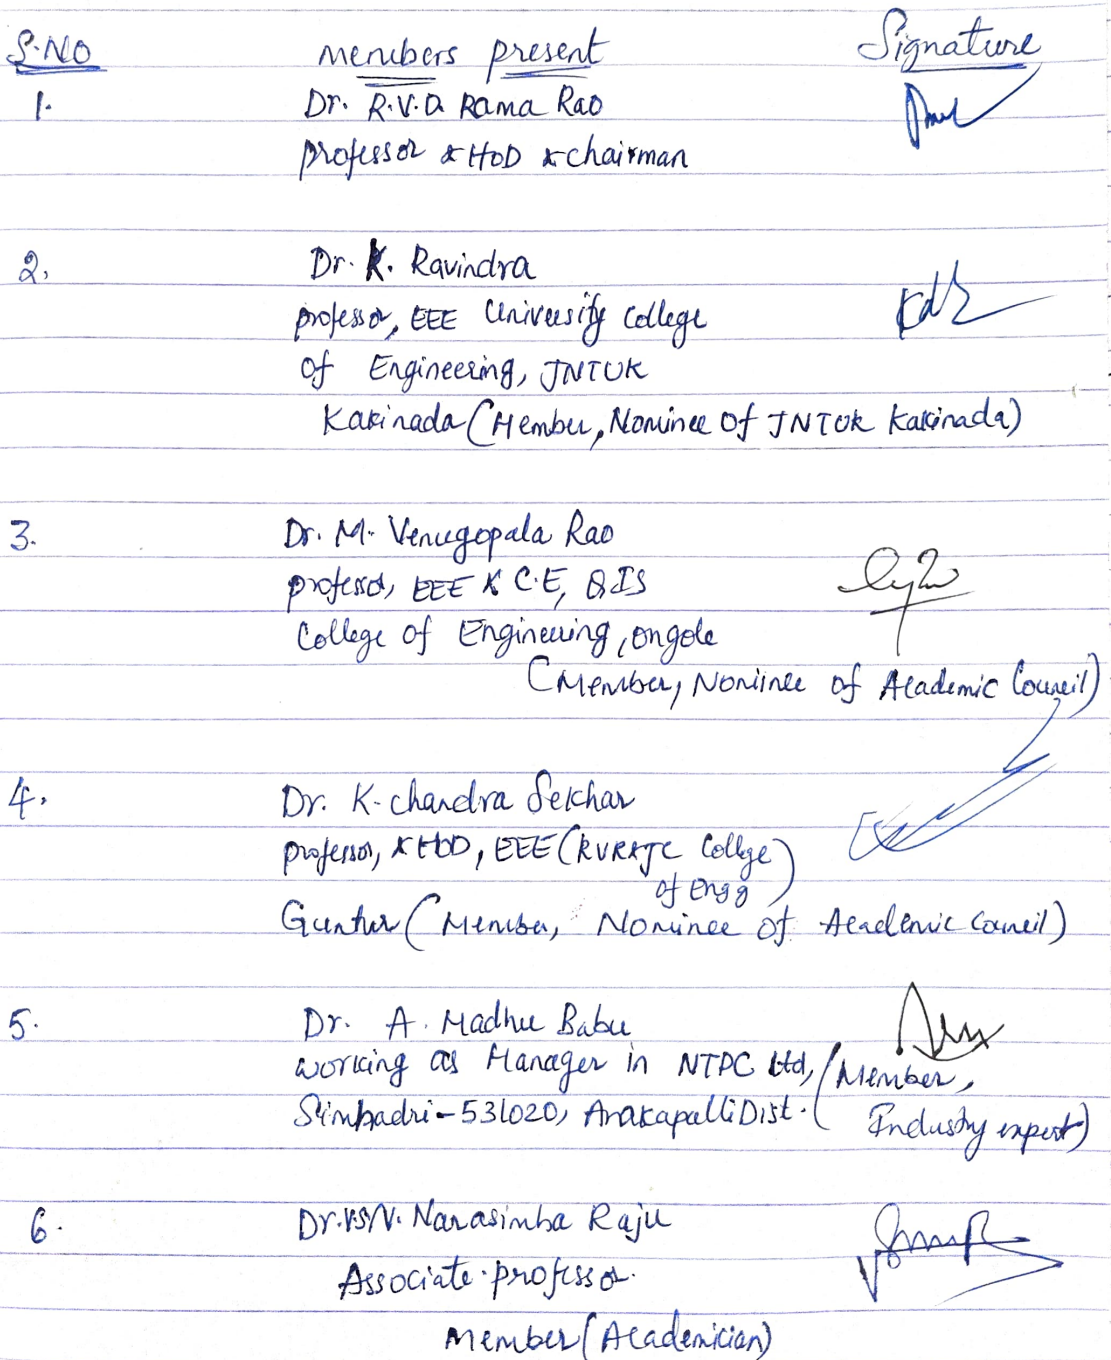 S.NO members present Signature
1. Dr. R.V.D. Rama Rao
professor & HoD & chairman
2. Dr. K. Ravindra
professor, EEE University College
of Engineering, JNTUK
Kakinada (Member, Nominee of JNTUK Kakinada)
3. Dr. M. Venugopala Rao
professor, EEE & C.E, QIS
College of Engineering, ongole
(Member, Nominee of Academic Council)
4. Dr. K. chandra Sekhar
professor, & HOD, EEE (RVR&JC College
of Engg)
Guntur (Member, Nominee of Academic Council)
5. Dr. A. Madhu Babu
working as Manager in NTPC Ltd, (Member,
Simhadri-531020, Anakapalli Dist. Industry expert)
6. Dr. V.S.N. Narasimha Raju
Associate professor
Member (Academician)